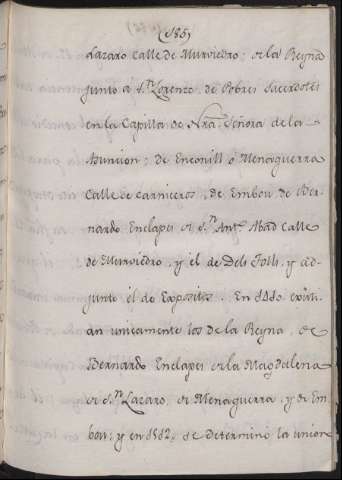 (185)
Lazaro calle de Murviedro; de la Reyna
junto a S.n Lorenzo de Pobres Sacerdotes
en la Capilla de Nra. Señora de la A-
suncion; de Enconill ó Menaguerra
Calle de Carniceros, de Embou de Ber-
nardo Enclapes de S.n Ant.o Abad calle
de Murviedro, y el de Dels Folls, y ad-
junto el de Expositos. En 1440 existi-
an unicamente los de la Reyna, de
Bernardo Enclapes de la Magdalena
de S.n Lazaro, de Menaguerra, y de Em-
bou; y en 1512, se determinó la union